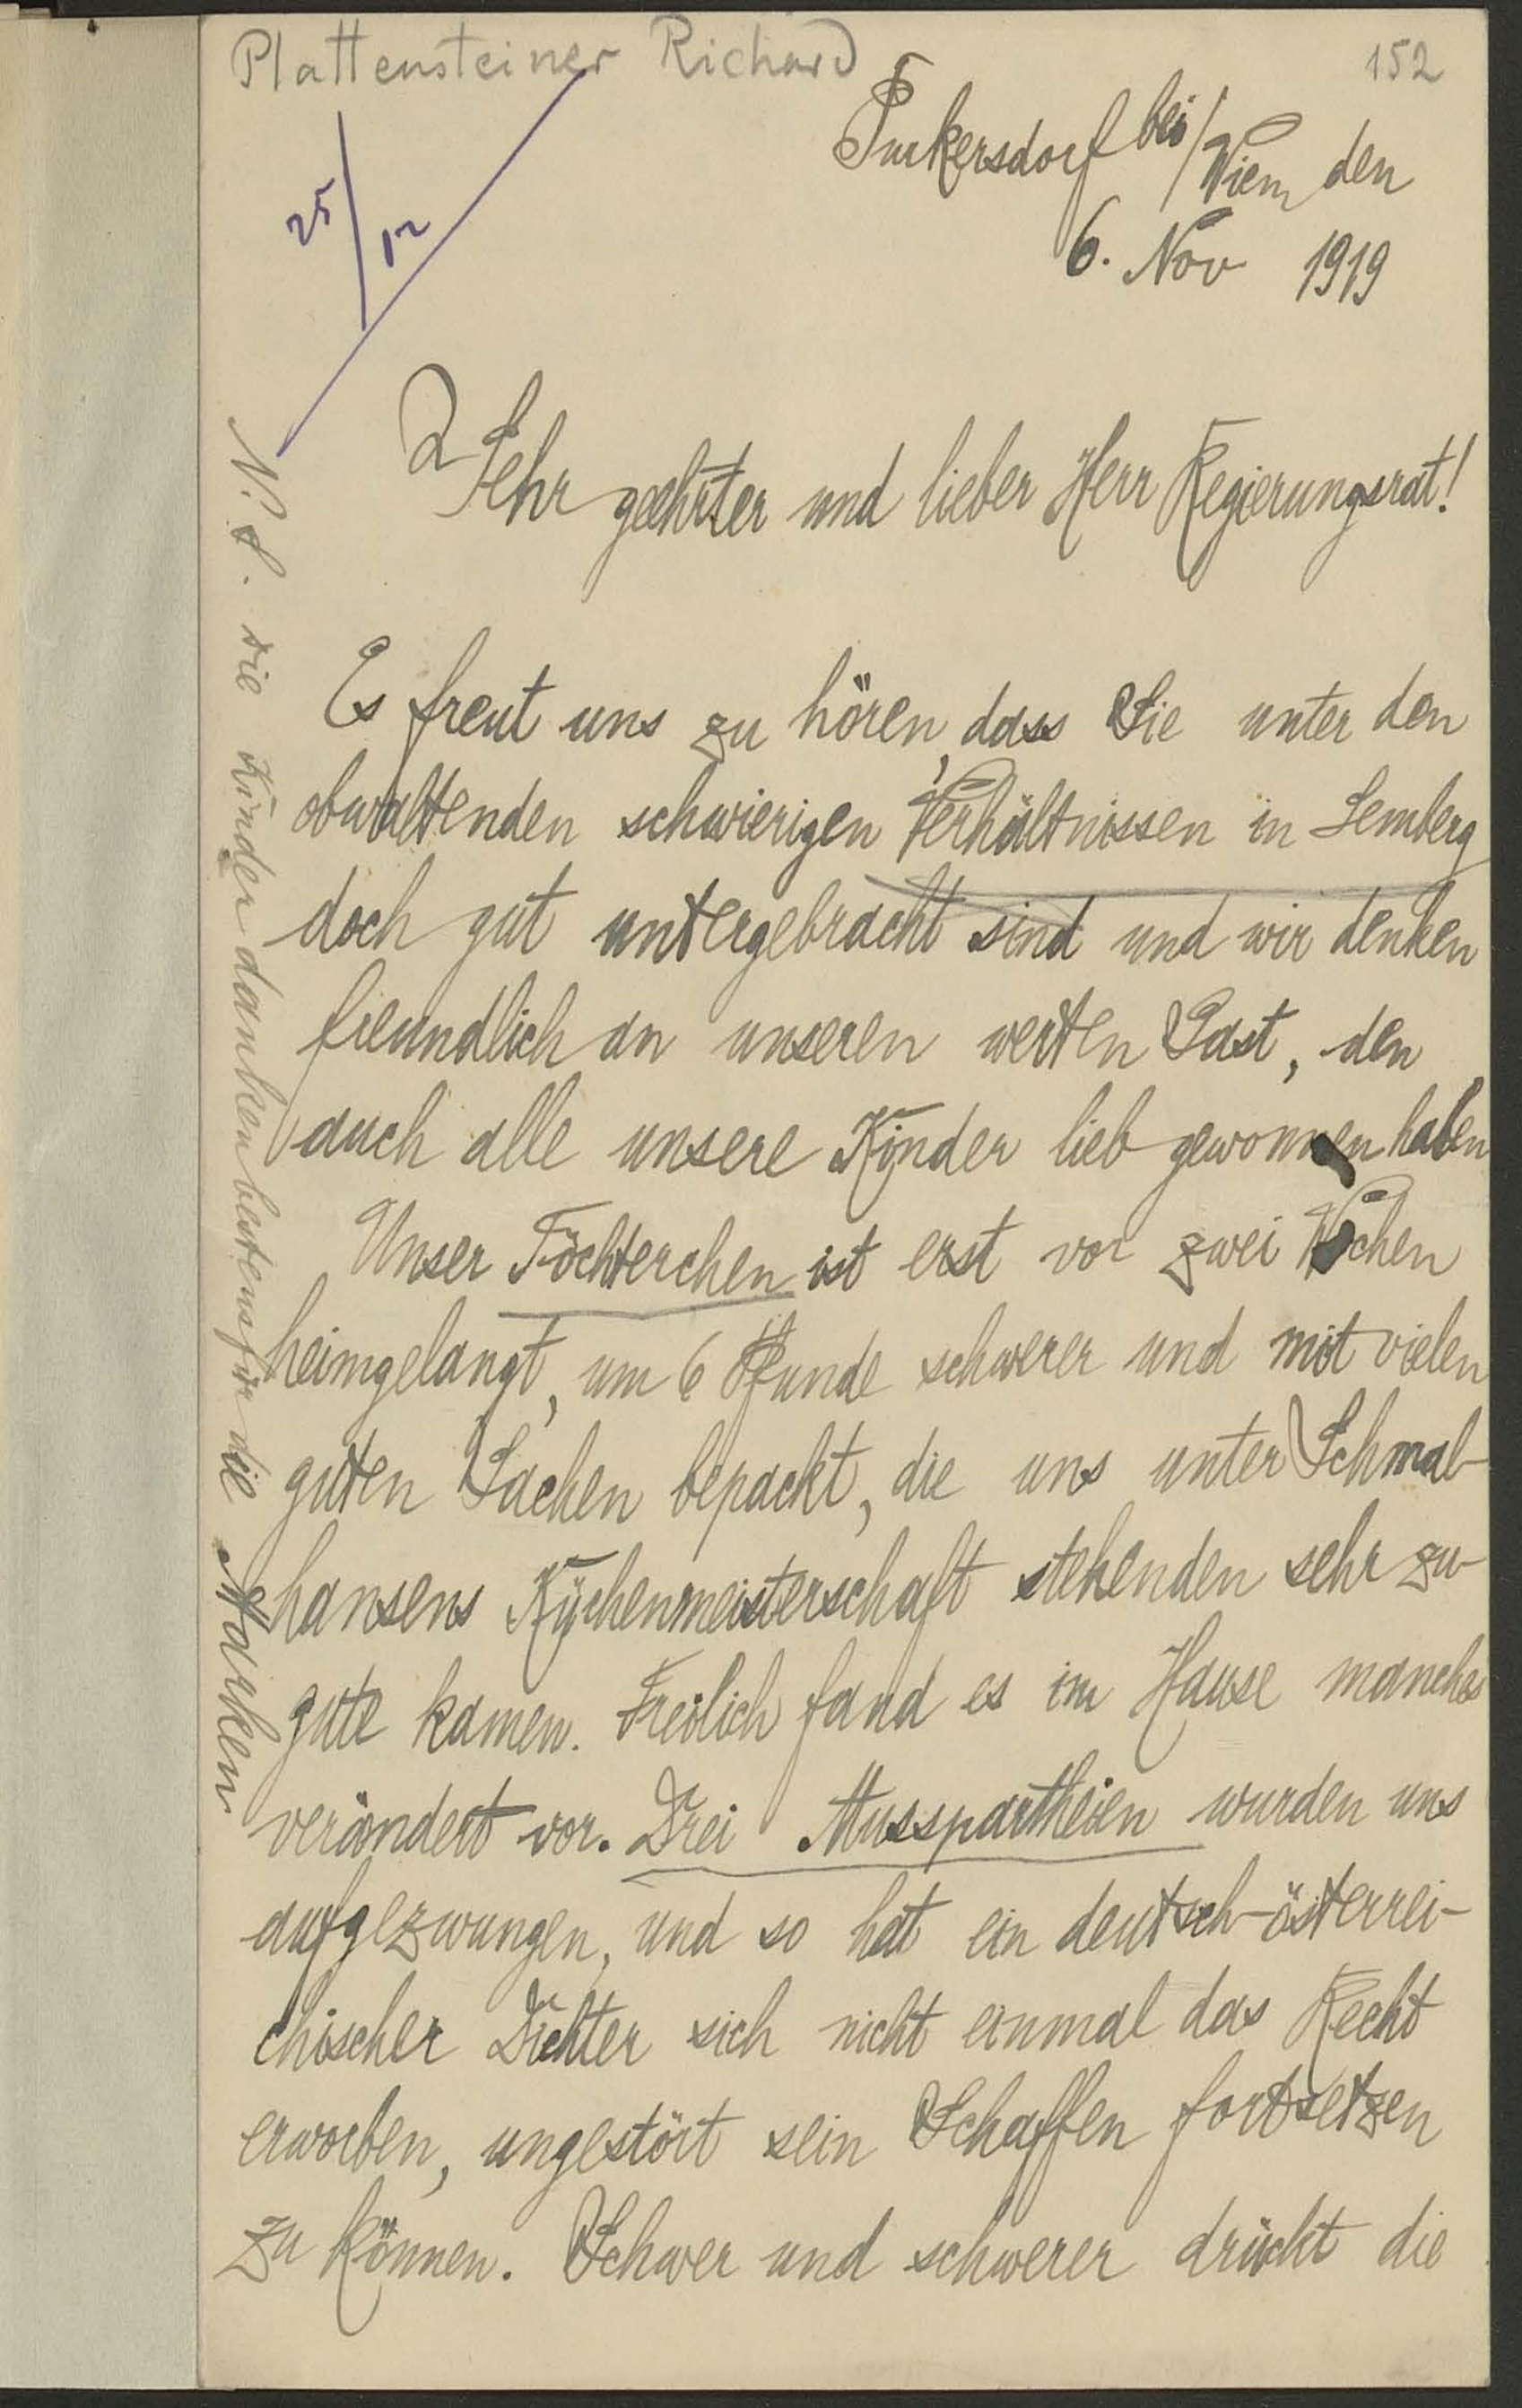 Plattensteiner Richard
152
25/12
Purkersdorf bei/Wien den
6. Nov 1919
Sehr geehrter und lieber Herr Regierungsrat!
Es freut uns zu hören, dass Sie unter den
obwaltenden schwierigen Verhältnissen in Lemberg
doch gut untergebracht sind und wir denken
freundlich an unseren werten Gast, den
auch alle unsere Kinder lieb gewonnen haben
Unser Töchterchen ist erst vor zwei Wochen
heimgelangt, um 6 Pfunde schwerer und mit vielen
guten Sachen bepackt, die uns unter Schmal-
hansens Küchenmeisterschaft stehenden sehr zu-
gute kamen. Freilich fand es im Hause manches
verändert vor. Drei Musspartheien wurden uns
aufgezwungen, und so hat ein deutsch-österrei-
chischer Dichter sich nicht einmal das Recht
erworben, ungestört sein Schaffen fortsetzen
zu können. Schwer und schwerer drückt die
N. S. die Kinder danken bestens für die Marken